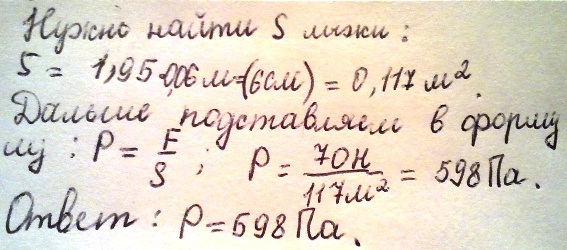 Нужно найти S лыжи:
S = 1,95·0,06м=(6см) = 0,117 м².
Дальше подставляем в форму
лу: P = F/S; P = 70Н/117м² = 598 Па.
Ответ: P = 598 Па.